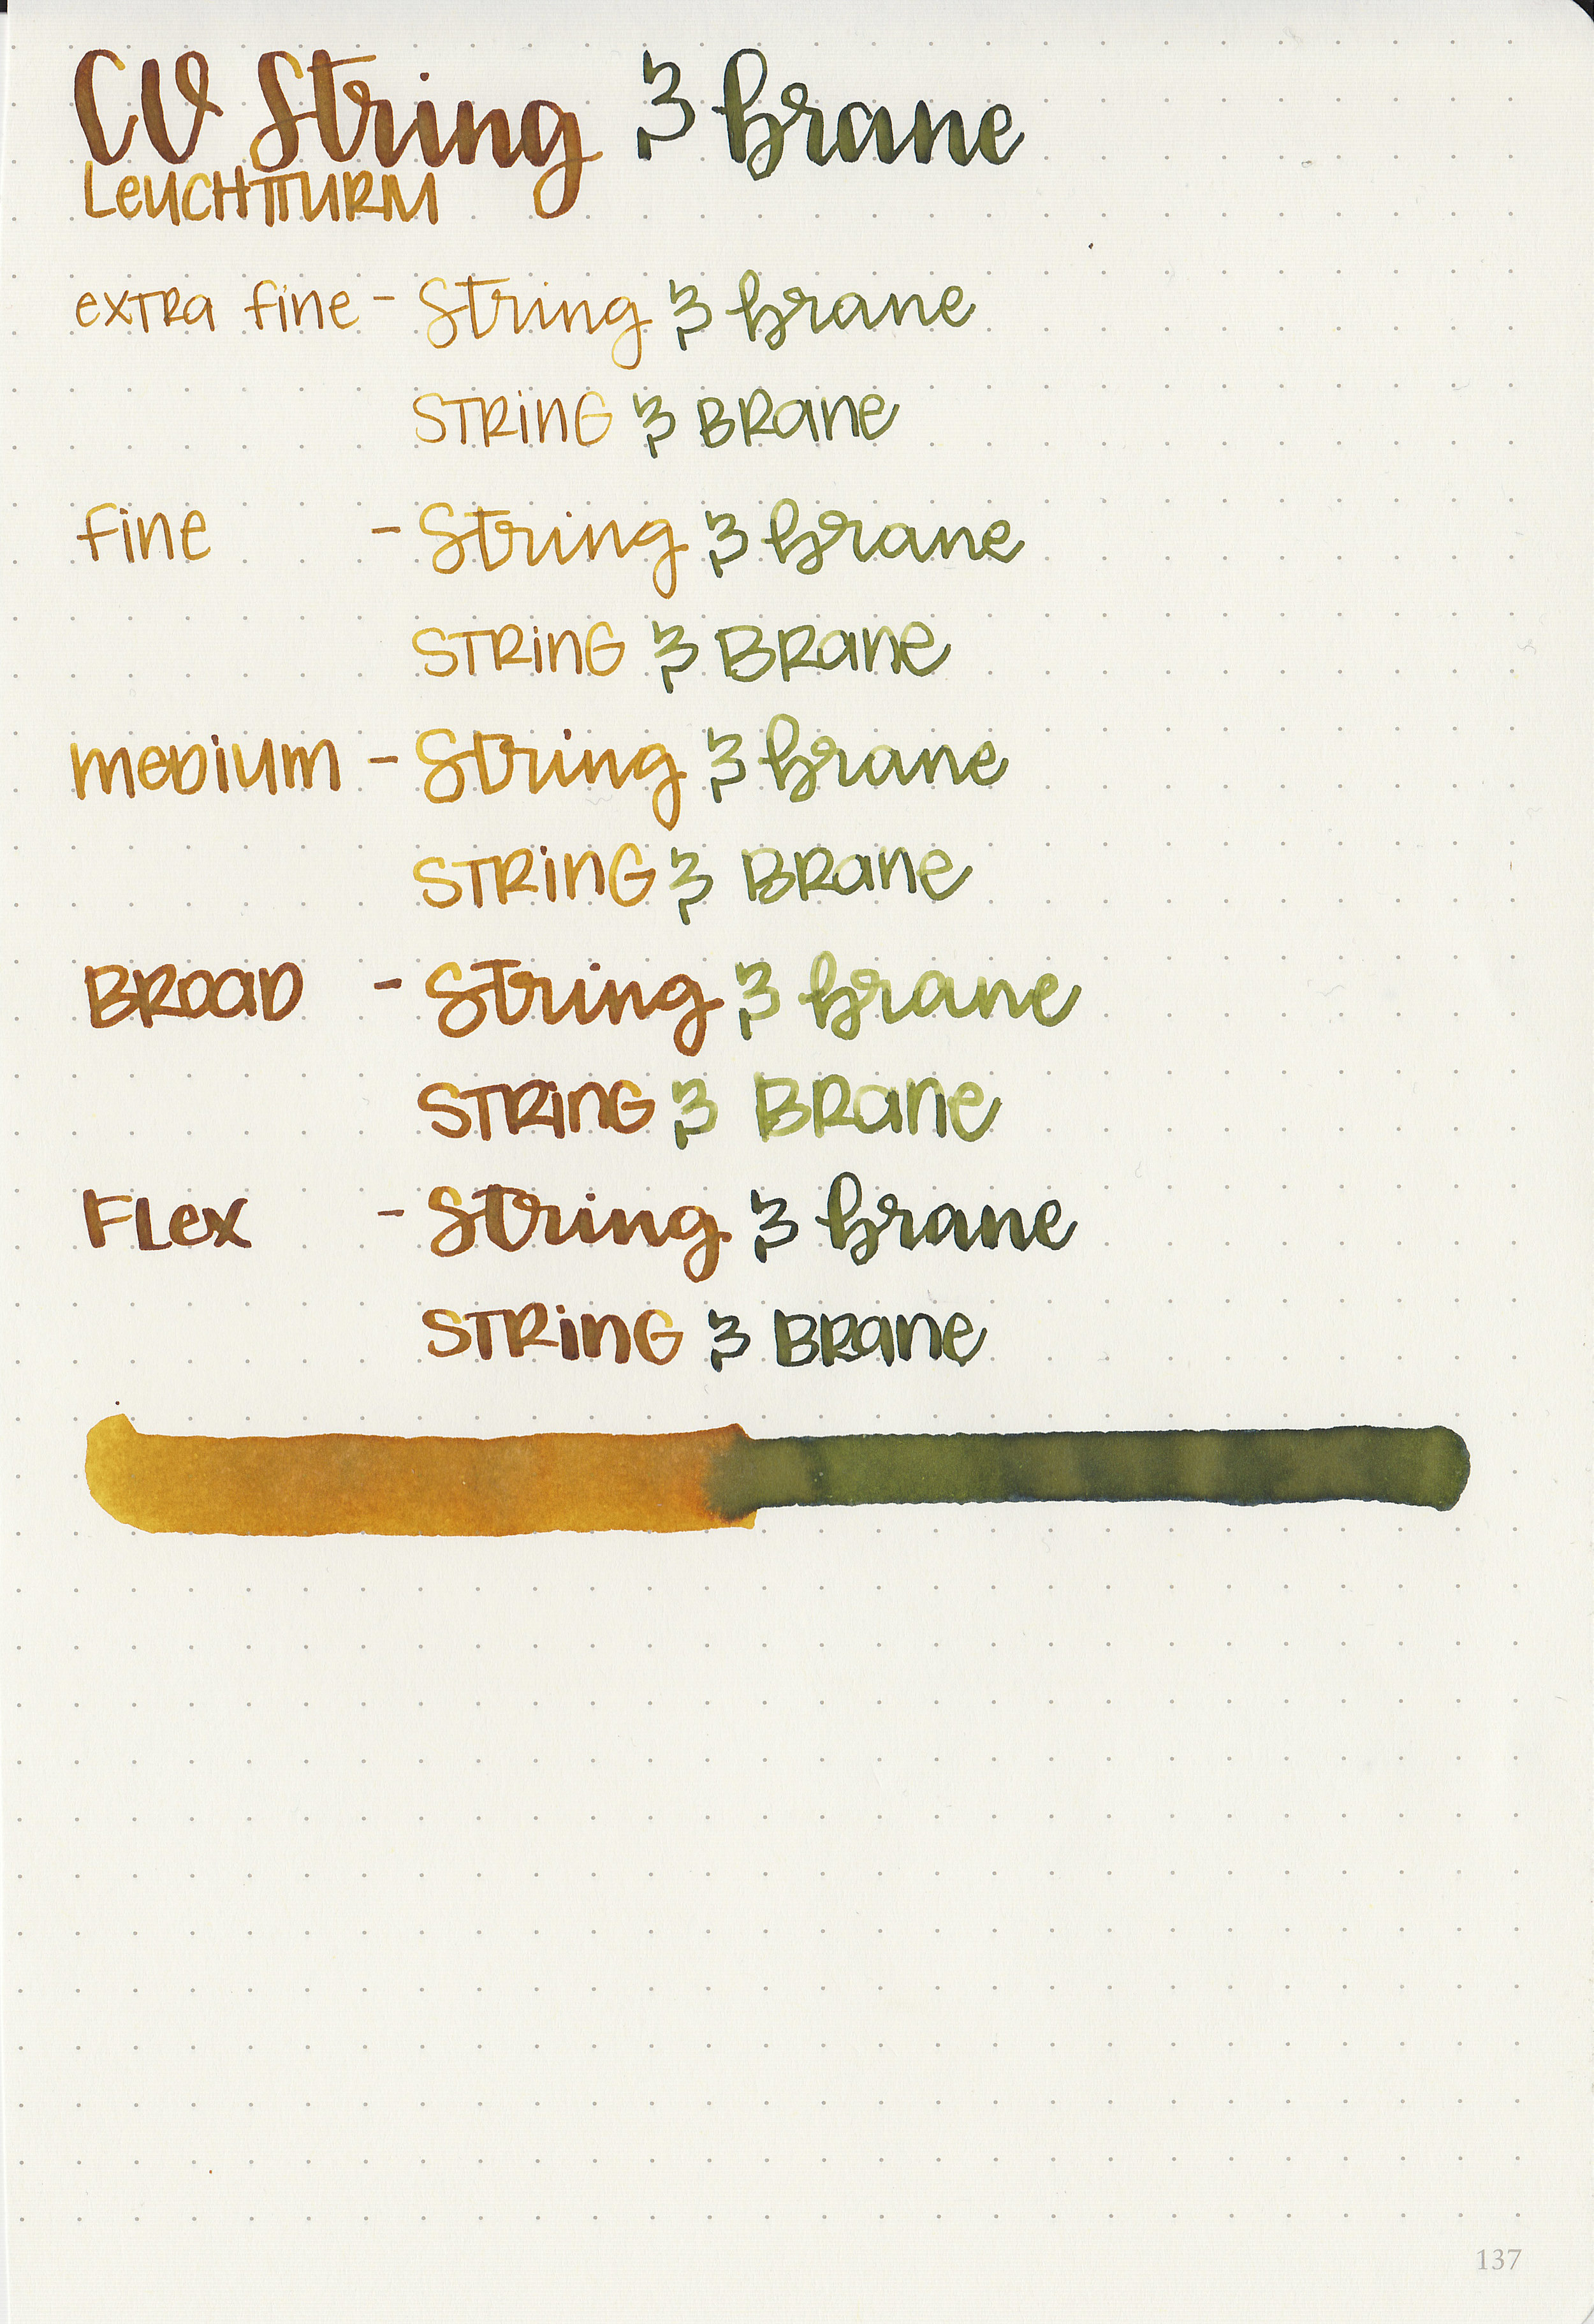 CV String & brane
LEUCHTTURM
extra fine - String & brane
STRING & BRANE
fine - String & brane
STRING & BRANE
medium - String & brane
STRING & BRANE
BROAD - String & brane
STRING & BRANE
FLEX - String & brane
STRING & BRANE
137